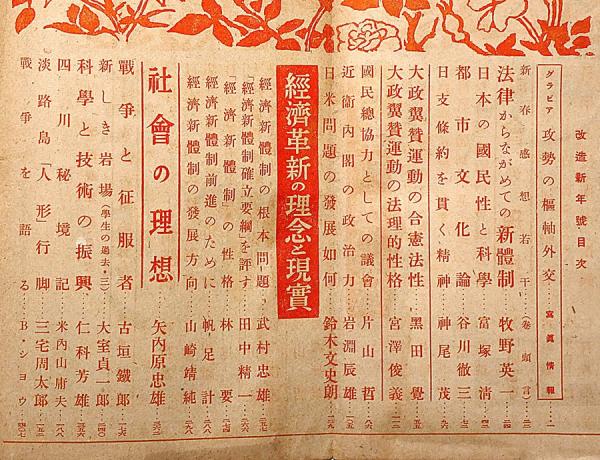 改造新年號目次
グラビア 攻勢の樞軸外交……寫眞情報……
新春感想若干(卷頭言)
法律からながめての新體制……牧野英一
日本の國民性と科學……富塚清
都市文化論……谷川徹三
日支條約を貫く精神……神尾茂
大政翼贊運動の合憲法性……黑田覺
大政翼贊運動の法理的性格……宮澤俊義
國民總協力としての議會……片山哲
近衛內閣の政治力……岩淵辰雄
日米問題の發展如何……鈴木文史朗
經濟革新の理念と現實
經濟新體制の根本問題……武村忠雄
經濟新體制確立要綱を評す……田中精一
「經濟新體制」の性格……林要
經濟新體制前進のために……帆足計
經濟新體制の發展方向……山崎靖純
社會の理想……矢內原忠雄
戰爭と征服者……古垣鐵郎
新しき岩場(學生の過去・三)……大室貞一郎
科學と技術の振興……仁科芳雄
四川秘境記……米內山庸夫
淡路島「人形行脚」……三宅周太郎
戰爭を語る……B・ショウ